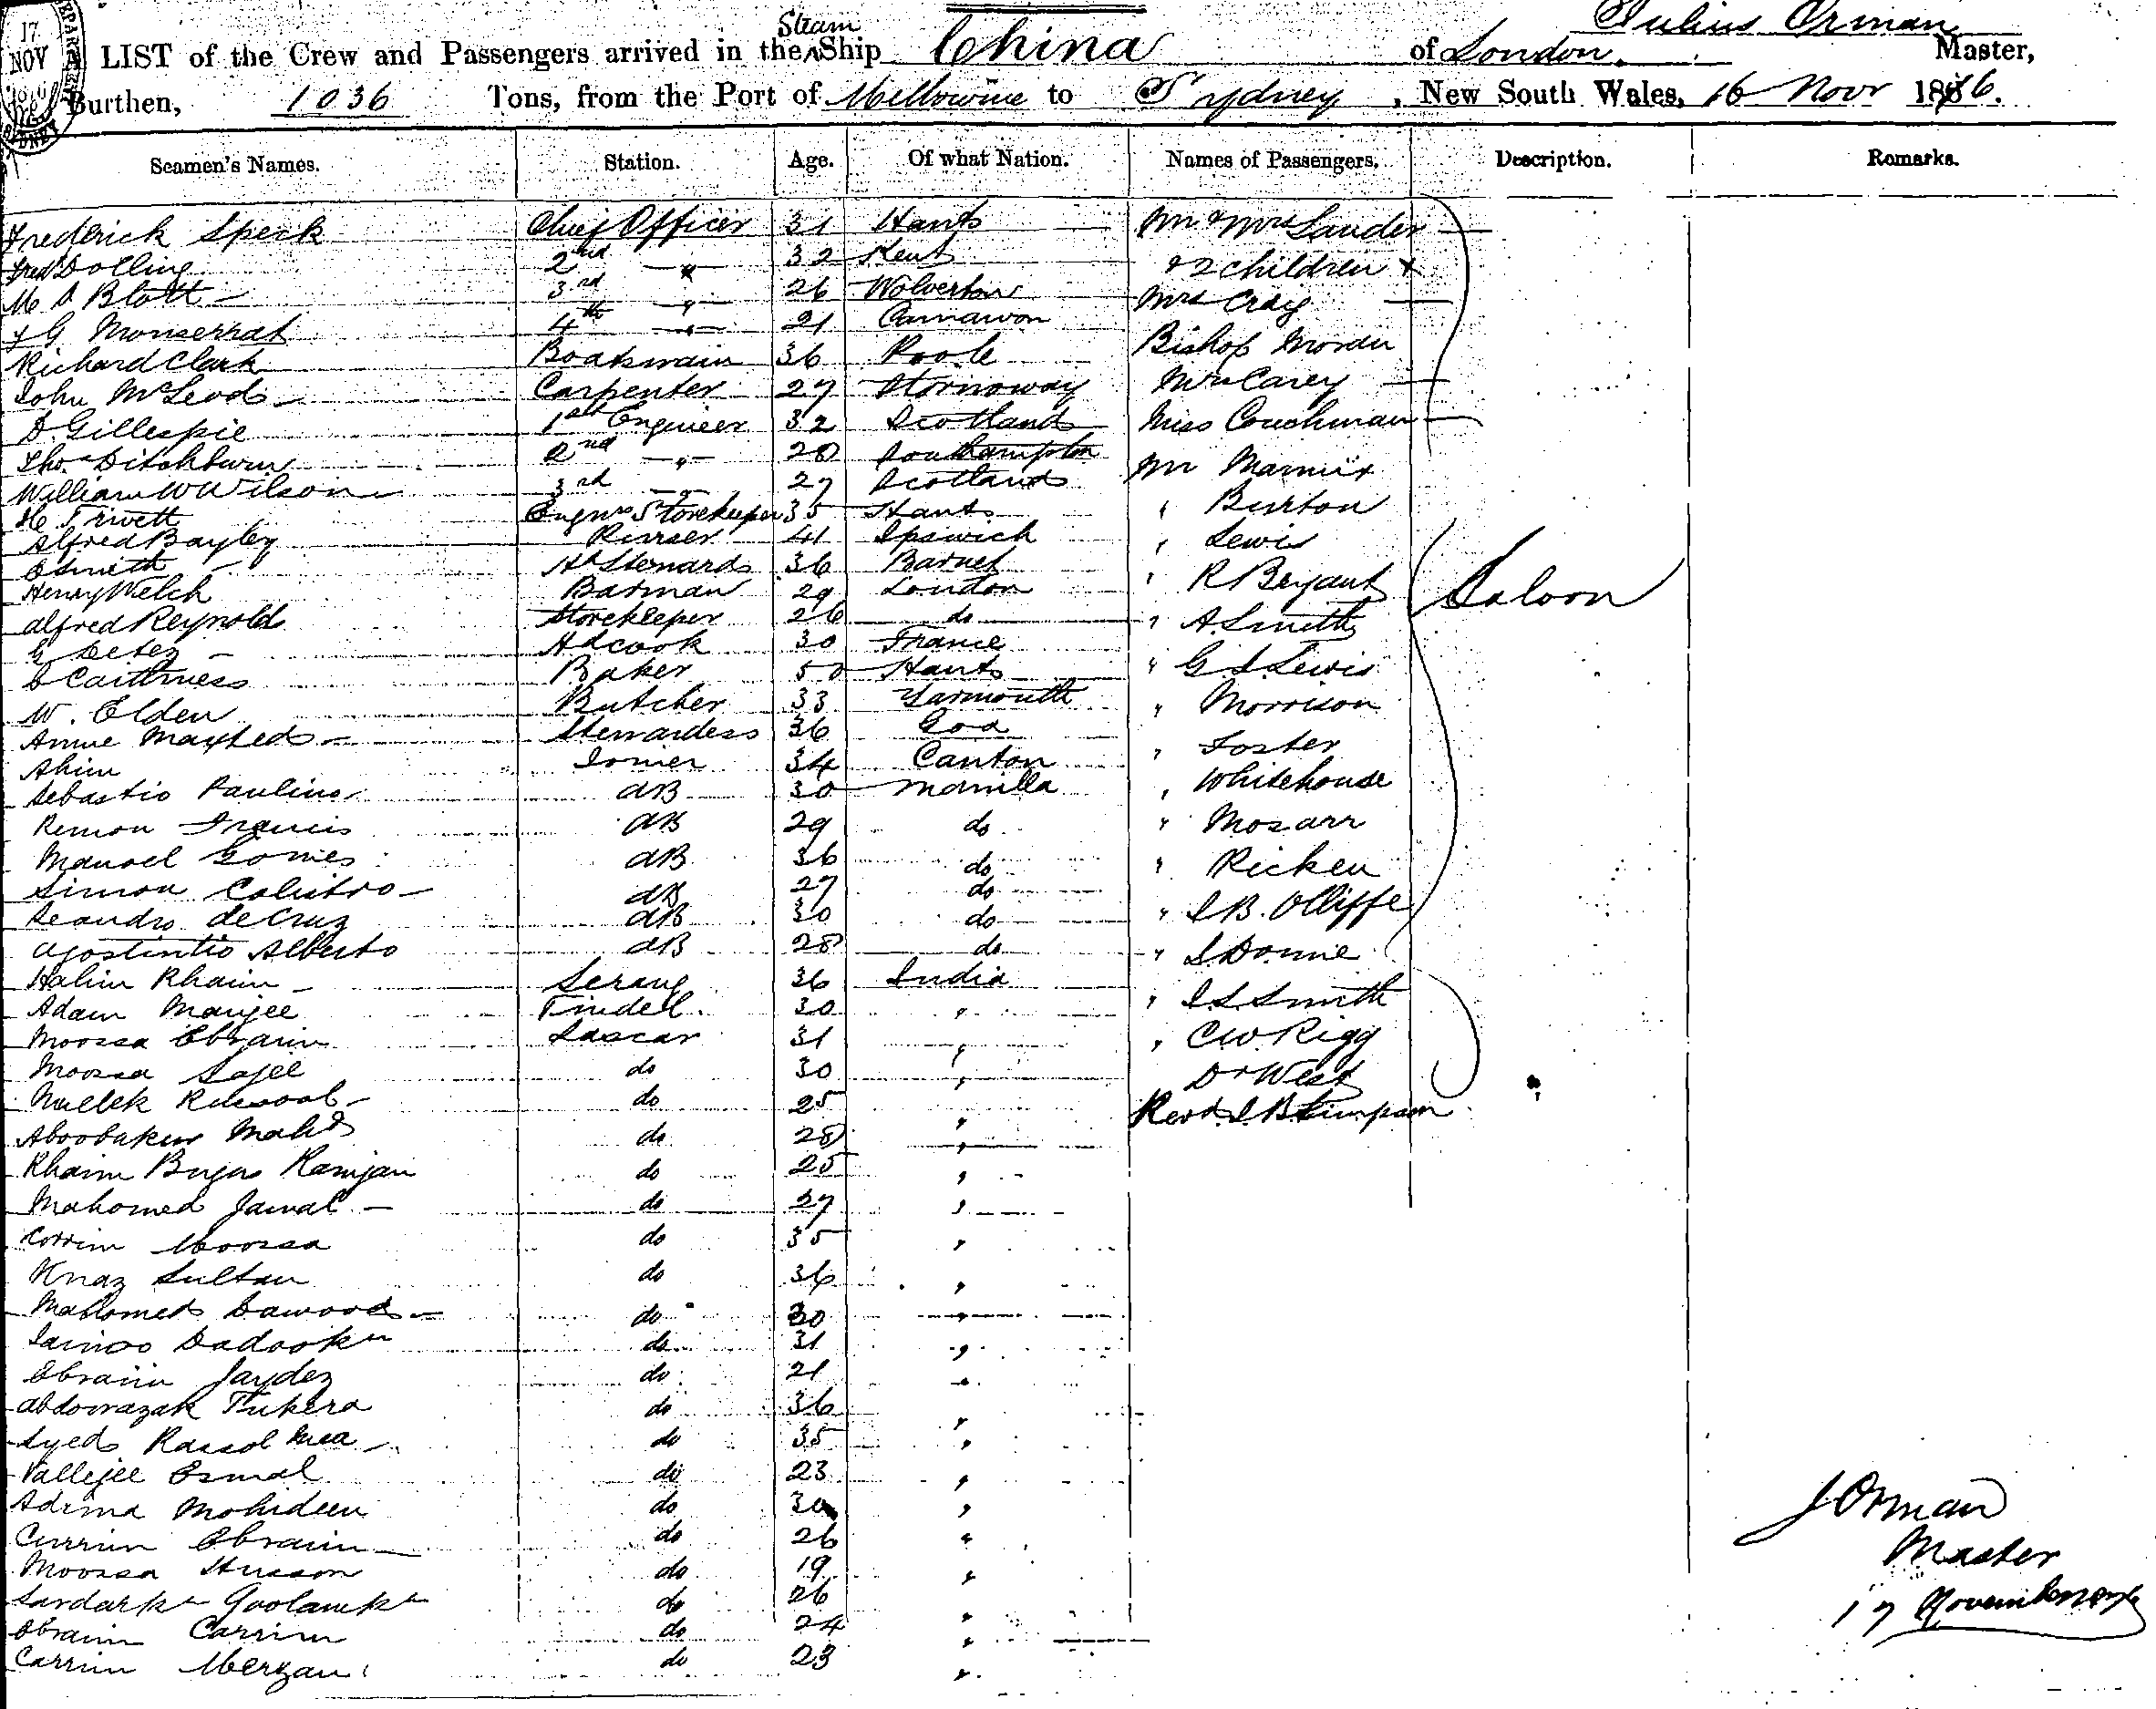 17
NOV
Julius Orman
LIST of the Crew and Passengers arrived in the Steam Ship China of London. Master,
Burthen, 1036 Tons, from the Port of Melbourne to Sydney, New South Wales, 16 Novr 1876.
Seamen's Names. Station. Age. Of what Nation. Names of Passengers. Description. Remarks.
Frederick Speck Chief Officer 31 Hants Mr & Mrs Lander
Fredk Dolling 2nd " 32 Kent & 2 children
M A Blott 3rd " 26 Wolverton Mrs Craig
G Monserrat 4th " 21 Carnarvon
Richard Clark Boatswain 36 Poole Bishop Moran
John McLeod Carpenter 27 Stornoway Mrs Carey
D. Gillespie 1st Engineer 32 Scotland Miss Couchman
Thos Ditchburn 2nd " 28 Southampton Mr
William W Wilson 3rd " 27 Scotland
H Trivett Engnrs Storekeeper 35 Hants " Burton
Alfred Bayley Purser 41 Ipswich " Lewis
Smith Hd Stewards 36 Barnet
Henry Welch Barman 29 London " R Bryant Saloon
Alfred Reynold Storekeeper 26 do " A. Smith
G Hdcook 30 France
Caithness Baker 50 Hants " G S Lewis
W. Elden Butcher 33 Yarmouth " Morrison
Annie Maxted Stewardess 36 Goa
Ahim 34 Canton " Foster
Sebastio Paulino AB 30 Manilla " Whitehouse
Remon Francis AB 29 do "
Manoel Gomes AB 36 do " Ricken
Simon AB 27 do
Leandro de Cruz AB 30 do " J B. Olliffe
Agostintio Alberto AB 28 do "
Halim Rhaim Serang 36 India
Adam Manjee Tindell 30 " " J S Smith
Moossa Ebraim Lascar 31 " " C W Rigg
Moossa Sajee do 30 " Dr West
do 25 " Revd J B Simpson
Aboobaker Mahd do 28 "
Rhaim Ramjan do 25 "
Mahomed Jamal do 27 "
Corrim Moossa do 35 "
Sultan do 36 "
Mahomed Dawood do 30 "
do 31 "
Ebraim do 21 "
Abdowrazak do 36 "
Syed Rassol do 35 "
Vallejee Esmal do 23 "
Mohideen do 30 "
Currim Ebraim do 26 "
Moossa Husson do 19 "
do 26 "
Ebraim Carrim do 24 "
Carrim do 23 "
J Orman
Master
17 November